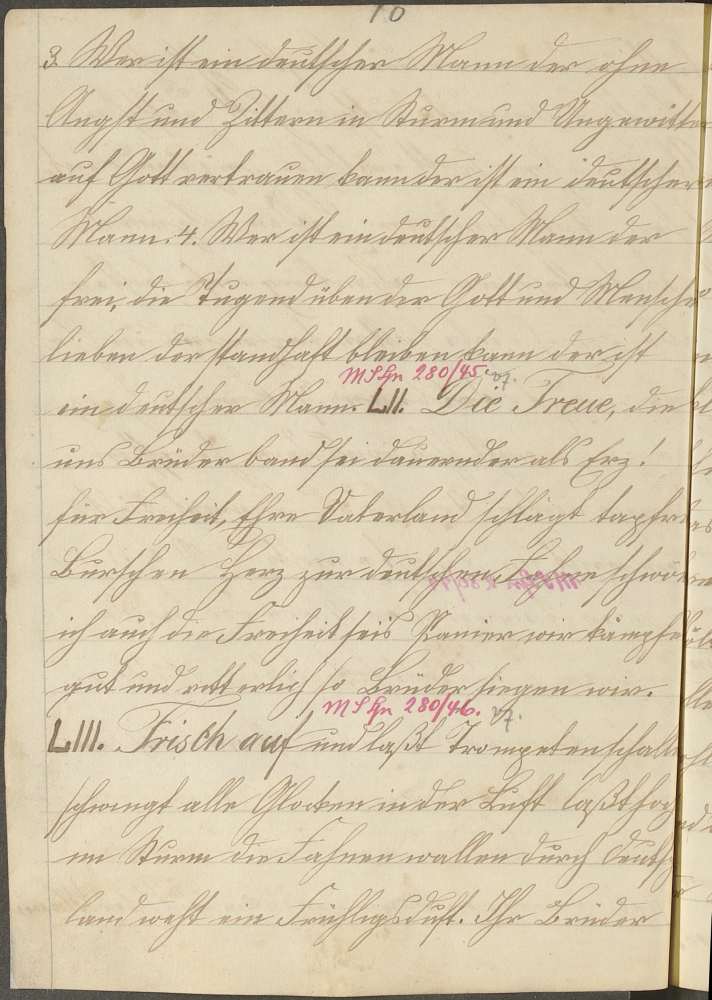 70
3. Wer ist ein deutscher Mann der ohne
Angst und Zittern in Sturm und Ungewitter
auf Gott vertrauen kann der ist ein deutscher
Mann. 4. Wer ist ein deutscher Mann der
frei, die Tugend üben der Gott und Mensche
lieben der standhaft bleiben kann der ist
MSHn 280/45.
ein deutscher Mann. LII. Die Treue, die
uns Brüder band sei dauernder als Erz!
für Freiheit, Ehre Vaterland schlägt tapfre
Burschen Herz zur deutschen Fahne schwöre
ich auch die Freiheit seis Panier wir kämpfe
gut und ritterlich so Brüder siegen wir.
MSHn 280/46.
LIII. Frisch auf und laßt Trompeten schalle
schwingt alle Glocken in der Luft laßt hoch
im Sturm die Fahnen wallen durch Deutsch
land weht ein Frühligsduft. Ihr Brüder